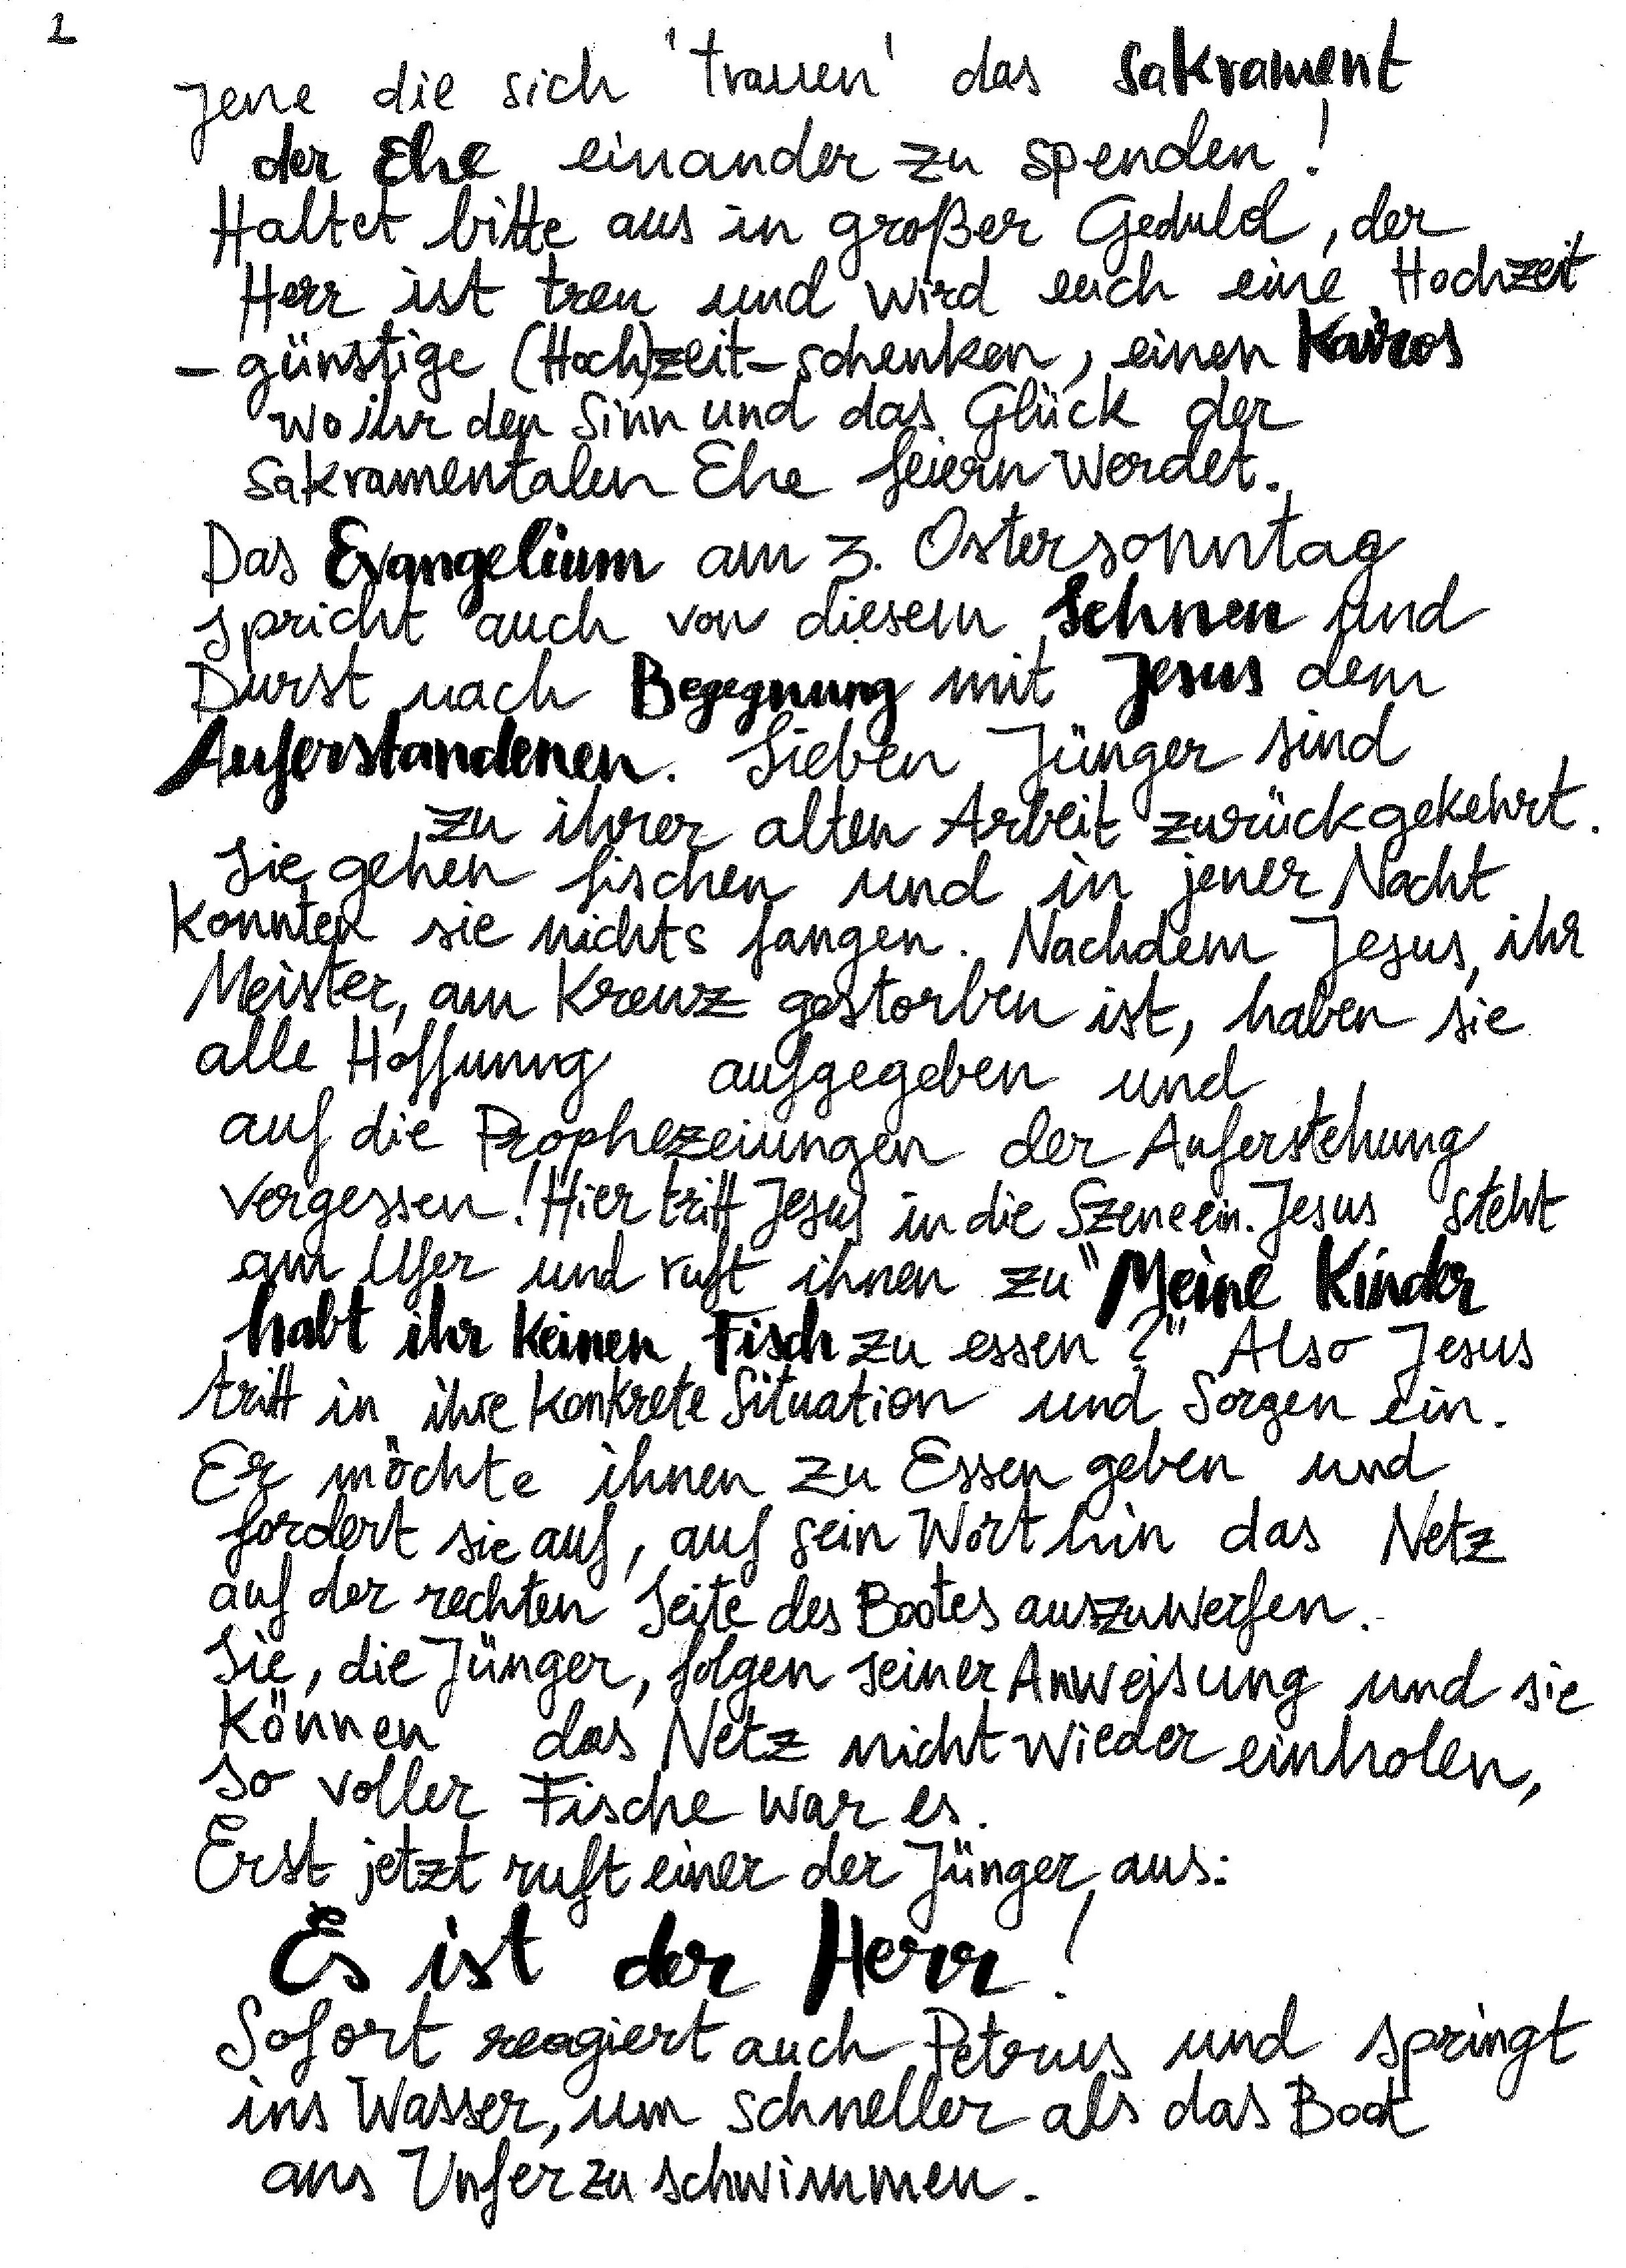 2
jene die sich 'trauen' das Sakrament
der Ehe einander zu spenden!
Haltet bitte aus in großer Geduld, der
Herr ist treu und wird euch eine Hochzeit
- günstige (Hoch)zeit - schenken, einen Kairos
wo ihr den Sinn und das Glück der
Sakramentalen Ehe feiern werdet.
Das Evangelium am 3. Ostersonntag
spricht auch von diesem Sehnen und
Durst nach Begegnung mit Jesus dem
Auferstandenen. Sieben Jünger sind
zu ihrer alten Arbeit zurückgekehrt.
Sie gehen fischen und in jener Nacht
konnten sie nichts fangen. Nachdem Jesus, ihr
Meister, am Kreuz gestorben ist, haben sie
alle Hoffnung aufgegeben und
auf die Prophezeiungen der Auferstehung
vergessen! Hier tritt Jesus in die Szene ein. Jesus steht
am Ufer und ruft ihnen zu "Meine Kinder
habt ihr keinen Fisch zu essen?" Also Jesus
tritt in ihre konkrete Situation und Sorgen ein.
Er möchte ihnen zu Essen geben und
fordert sie auf, auf sein Wort hin das Netz
auf der rechten Seite des Bootes auszuwerfen.
Sie, die Jünger, folgen seiner Anweisung und sie
können das Netz nicht wieder einholen,
so voller Fische war es.
Erst jetzt ruft einer der Jünger aus:
Es ist der Herr!
Sofort reagiert auch Petrus und springt
ins Wasser, um schneller als das Boot
ans Unfer zu schwimmen.